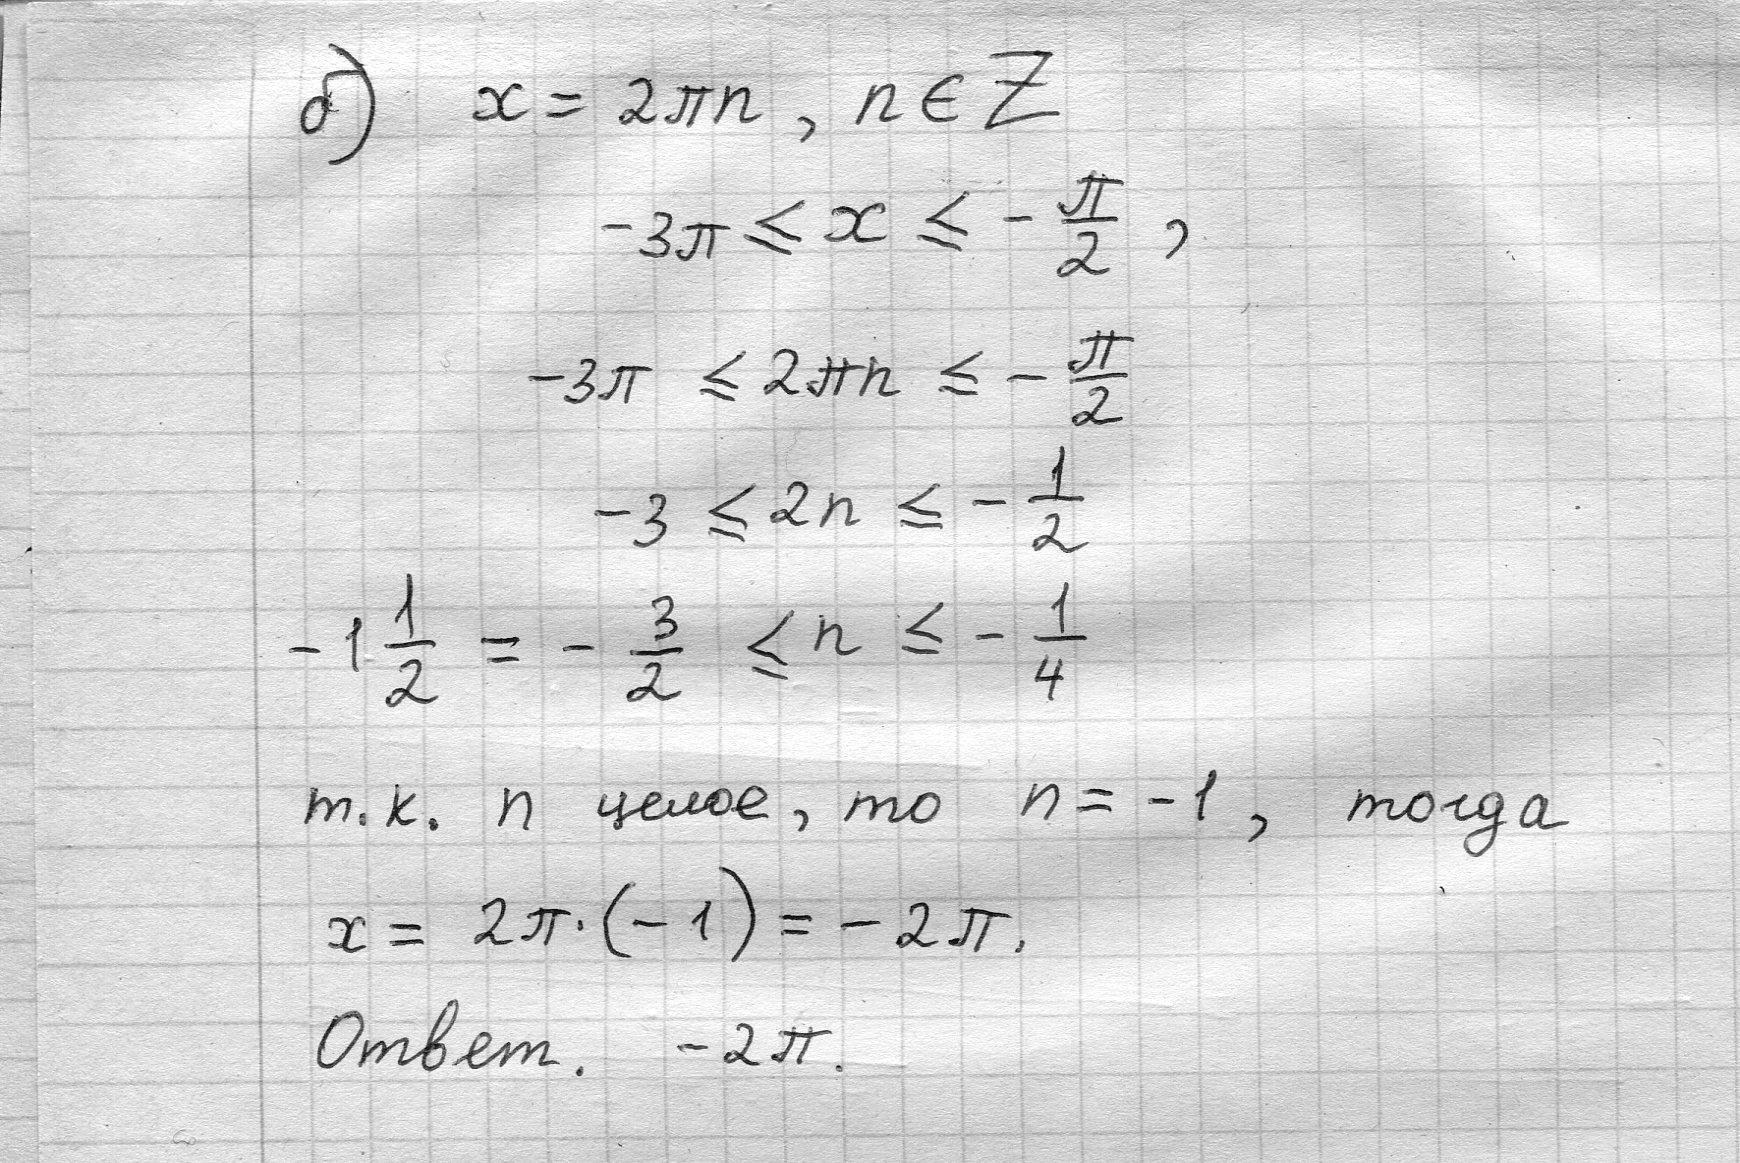 б) x = 2πn, n ∈ Z
-3π ≤ x ≤ -π/2,
-3π ≤ 2πn ≤ -π/2
-3 ≤ 2n ≤ -1/2
-1 1/2 = -3/2 ≤ n ≤ -1/4
т.к. n целое, то n = -1, тогда
x = 2π·(-1) = -2π.
Ответ. -2π.